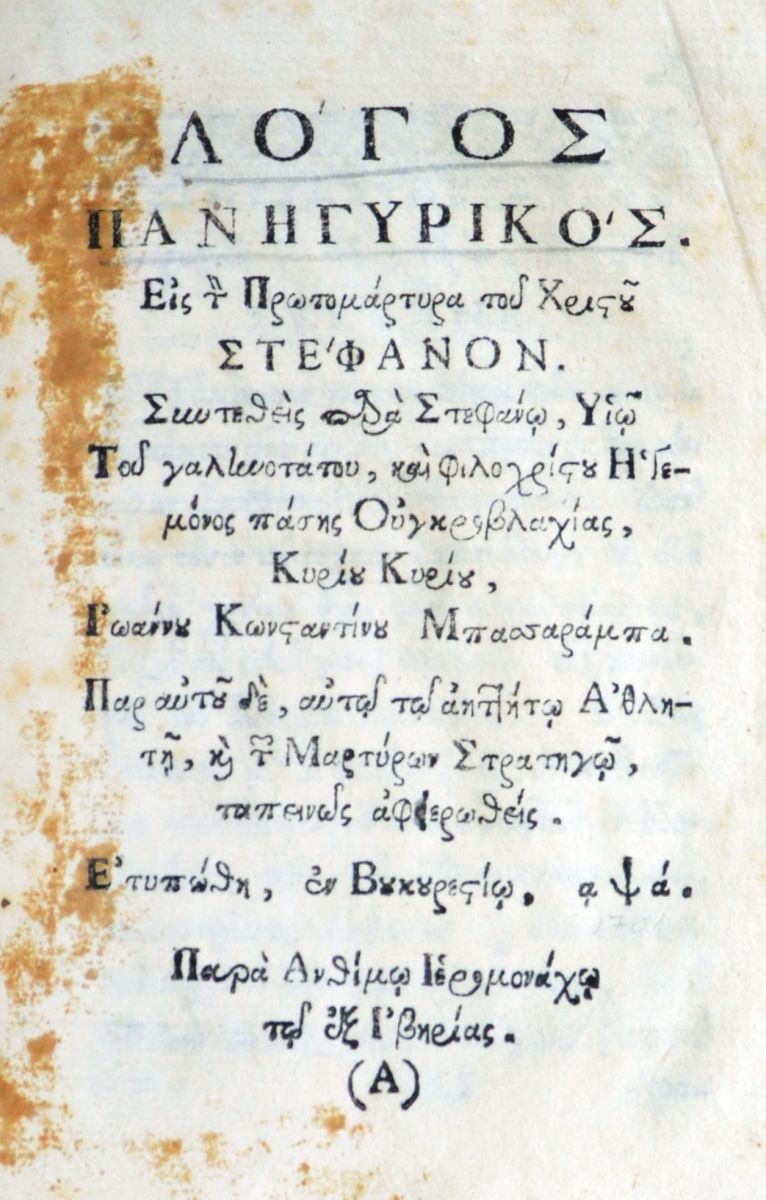 ΛΌΓΟΣ
ΠΑΝΗΓΥΡΙΚΌΣ.
Εἰς τὸν Πρωτομάρτυρα τοῦ Χριϛοῦ
ΣΤΈΦΑΝΟΝ.
Συντεθεὶς παρὰ Στεφάνῳ, Υἱῷ
Τοῦ γαλινοτάτου, καὶ φιλοχρίϛου Ἡγε-
μόνος πάσης Οὐγκροβλαχίας,
Κυρίου Κυρίου,
Ἰωάννου Κωνϛαντίνου Μπασσαράμπα.
Παρ αὐτοῦ δὲ, αὐτῷ τῷ ἀηττήτῳ Ἀθλη-
τῇ, κὶ τῶν Μαρτύρων Στρατηγῷ,
ταπεινῶς ἀφιερωθείς.
Ἐτυπώθη, ἐν Βουκουρεϛίῳ, αψά.
1701
Παρὰ Ανθίμῳ Ἱερομονάχῳ
τῷ ἐξ Ἰβηρίας.
(Α)